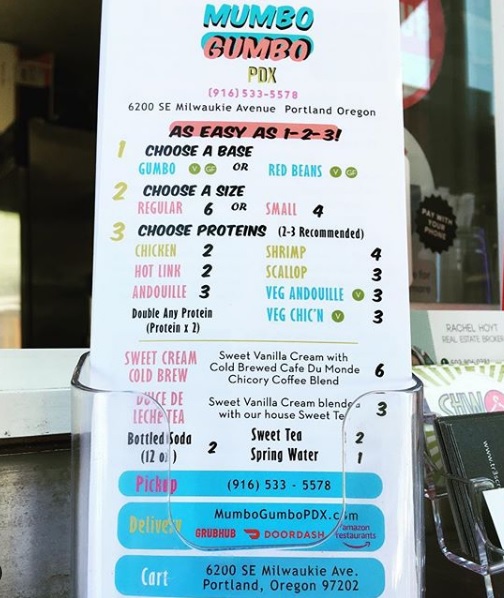 MUMBO
GUMBO
PDX
(916)533-5578
6200 SE Milwaukie Avenue Portland Oregon
AS EASY AS 1-2-3!
1 CHOOSE A BASE
GUMBO V GF OR RED BEANS V GF
2 CHOOSE A SIZE
REGULAR 6 OR SMALL 4
3 CHOOSE PROTEINS (2-3 Recommended)
CHICKEN 2 SHRIMP 4
HOT LINK 2 SCALLOP 3
ANDOUILLE 3 VEG ANDOUILLE V 3
Double Any Protein
(Protein x 2)
VEG CHIC'N V 3
SWEET CREAM
COLD BREW
Sweet Vanilla Cream with
Cold Brewed Cafe Du Monde
Chicory Coffee Blend
6
DULCE DE
LECHE TEA
Sweet Vanilla Cream blended
with our house Sweet Tea
3
Bottled Soda
(12 oz)
2
Sweet Tea 2
Spring Water 1
Pickup (916) 533 - 5578
Delivery MumboGumboPDX.com
GRUBHUB DOORDASH amazon
restaurants
Cart 6200 SE Milwaukie Ave.
Portland, Oregon 97202
PAY WITH
YOUR
PHONE
RACHEL HOYT
REAL ESTATE BROKER